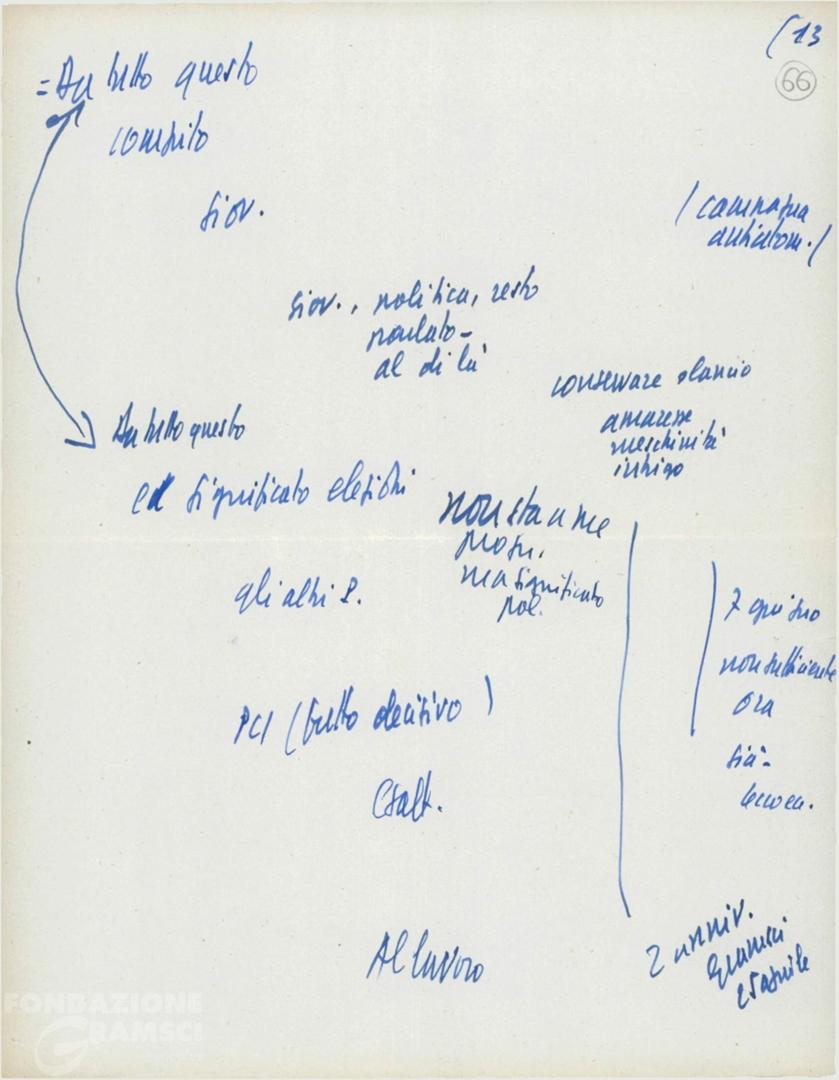 (13
66
= Da tutto questo
compito
giov.
/ campagna
antiatom. /
giov., politica, resto
popolato -
al di là
conservare slancio
amarezze
meschinità
intrigo
Da tutto questo
significato elezioni
non sta a me
progn.
ma significato
pol.
gli altri P.
7 giugno
non sufficiente
ora
già -
PCI (tutto decisivo)
Al lavoro
2 anniv.
Gramsci
25 aprile
FONDAZIONE
GRAMSCI